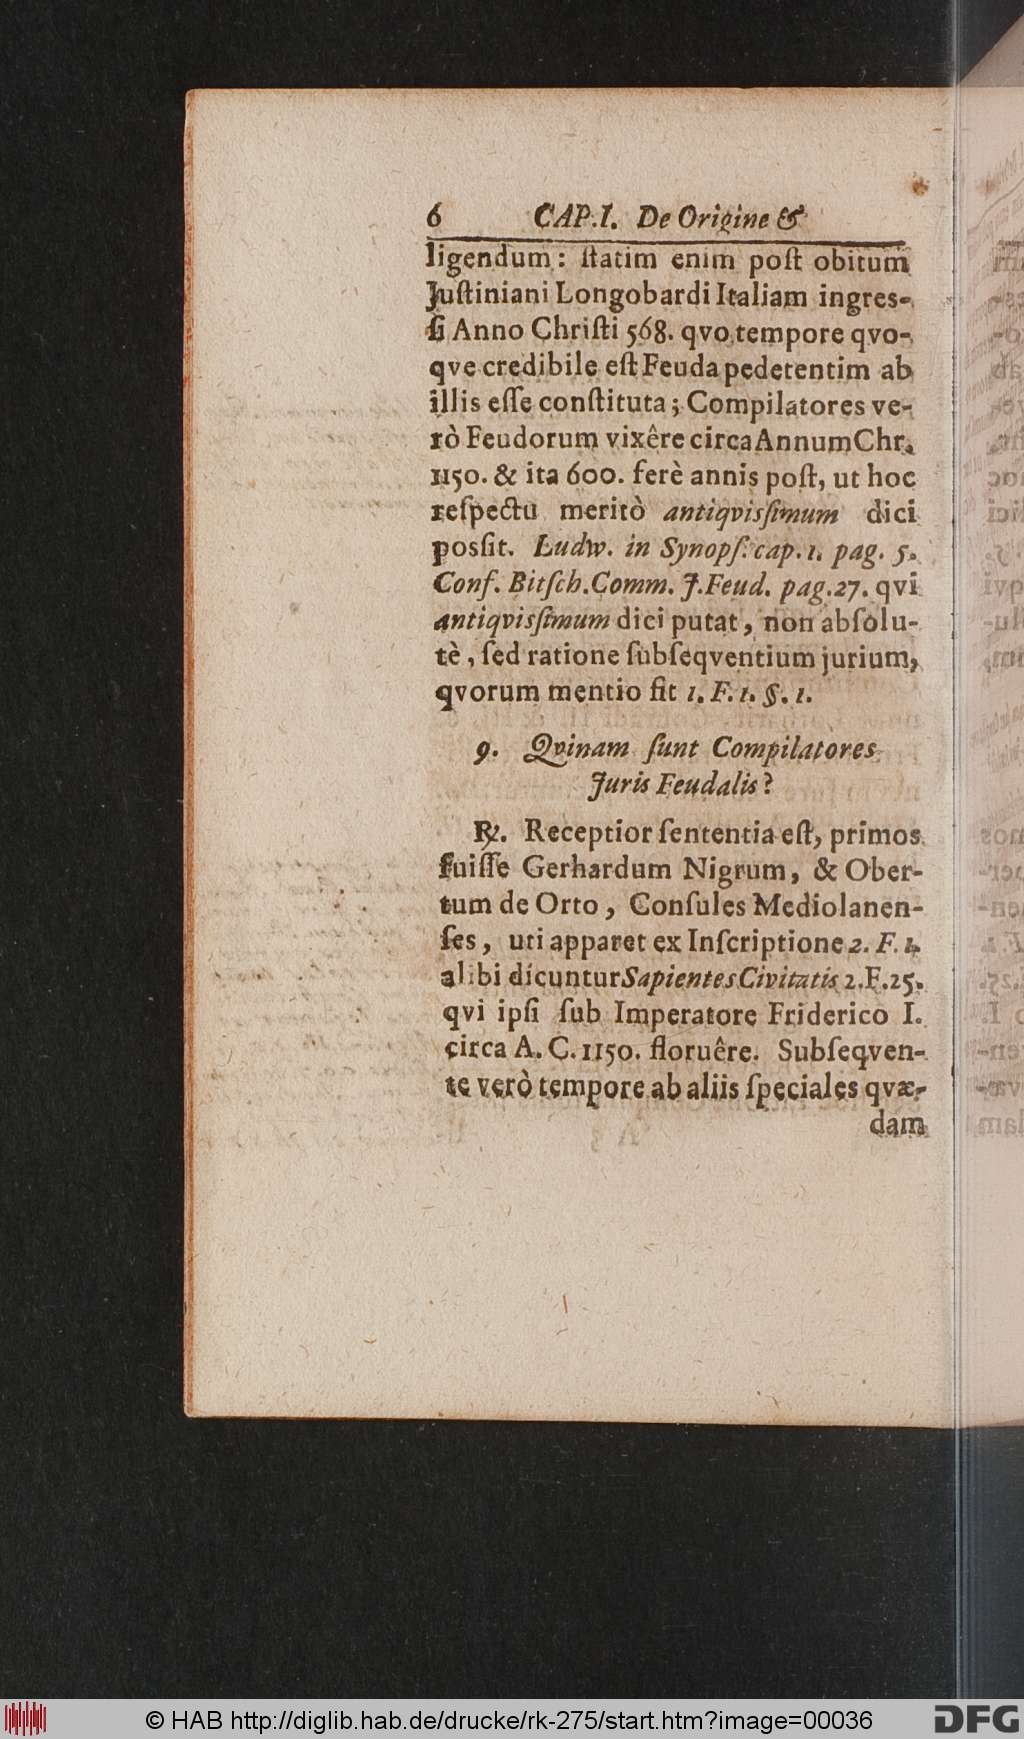 6 CAP.I. De Origine &
ligendum: ſtatim enim poſt obitum
Juſtiniani Longobardi Italiam ingres-
ſi Anno Chriſti 568. qvo tempore qvo-
qve credibile eſt Feuda pedetentim ab
illis eſſe conſtituta; Compilatores ve-
rò Feudorum vixêre circa Annum Chr.
1150. & ita 600. ferè annis poſt, ut hoc
reſpectu meritò antiqvisſimum dici
posſit. Ludw. in Synopſ. cap. 1. pag. 5.
Conf. Bitſch. Comm. J. Feud. pag. 27. qvi
antiqvisſimum dici putat, non abſolu-
tè, ſed ratione ſubſeqventium jurium,
qvorum mentio fit 1. F. 1. §. 1.
9. Qvinam ſunt Compilatores
Juris Feudalis?
℞. Receptior ſententia eſt, primos
fuiſſe Gerhardum Nigrum, & Ober-
tum de Orto, Conſules Mediolanen-
ſes, uti apparet ex Inſcriptione 2. F. 1.
alibi dicuntur Sapientes Civitatis 2. F. 25.
qvi ipſi ſub Imperatore Friderico I.
circa A. C. 1150. floruêre. Subſeqven-
te verò tempore ab aliis ſpeciales qvæ-
dam
© HAB http://diglib.hab.de/drucke/rk-275/start.htm?image=00036
DFG